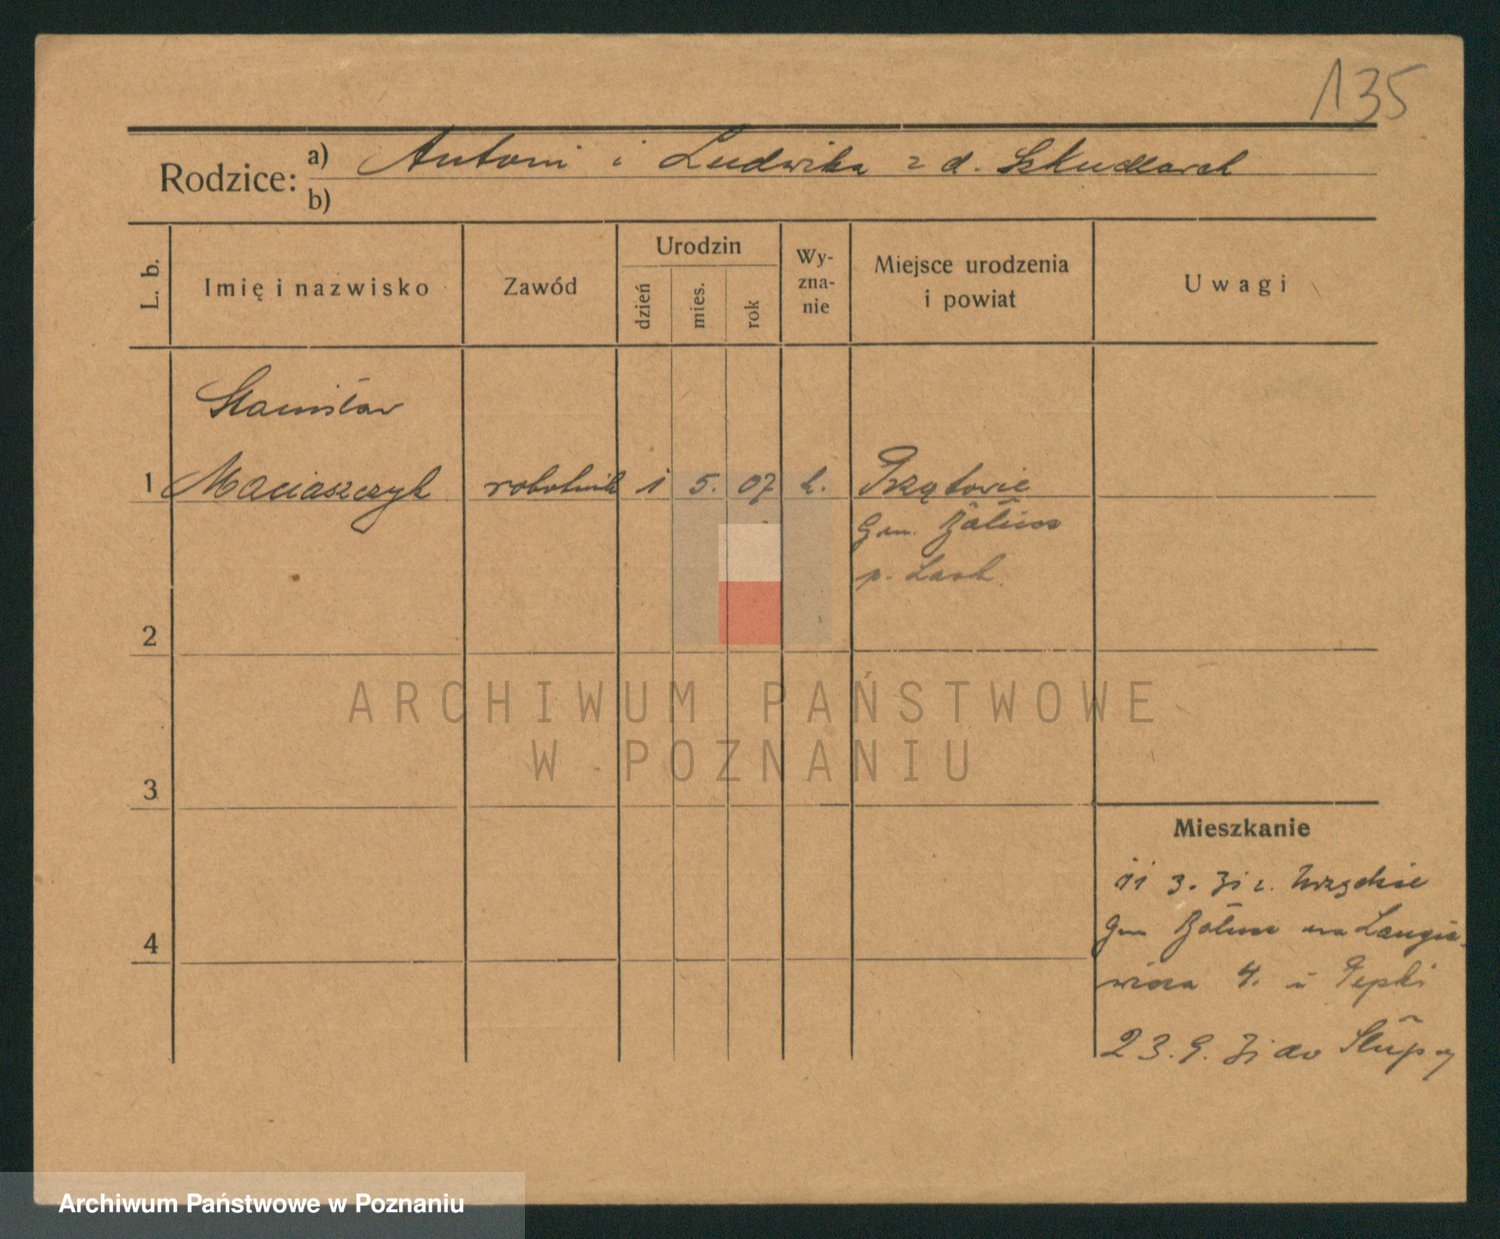 135
Rodzice: a) Antoni i Ludwika z d. Szkudlarek
b)
L. b. Imię i nazwisko Zawód Urodzin dzień mies. rok Wyznanie Miejsce urodzenia i powiat Uwagi
Stanisław
1 Maciaszczyk robotnik 1 5. 07 k.
Gm. Bałucz
p. Lask
2
ARCHIWUM PAŃSTWOWE
W POZNANIU
3
Mieszkanie
11 3. 31 z.
4
Gm Bałucz
4. u
23. 9. 31 do Słupcy
Archiwum Państwowe w Poznaniu